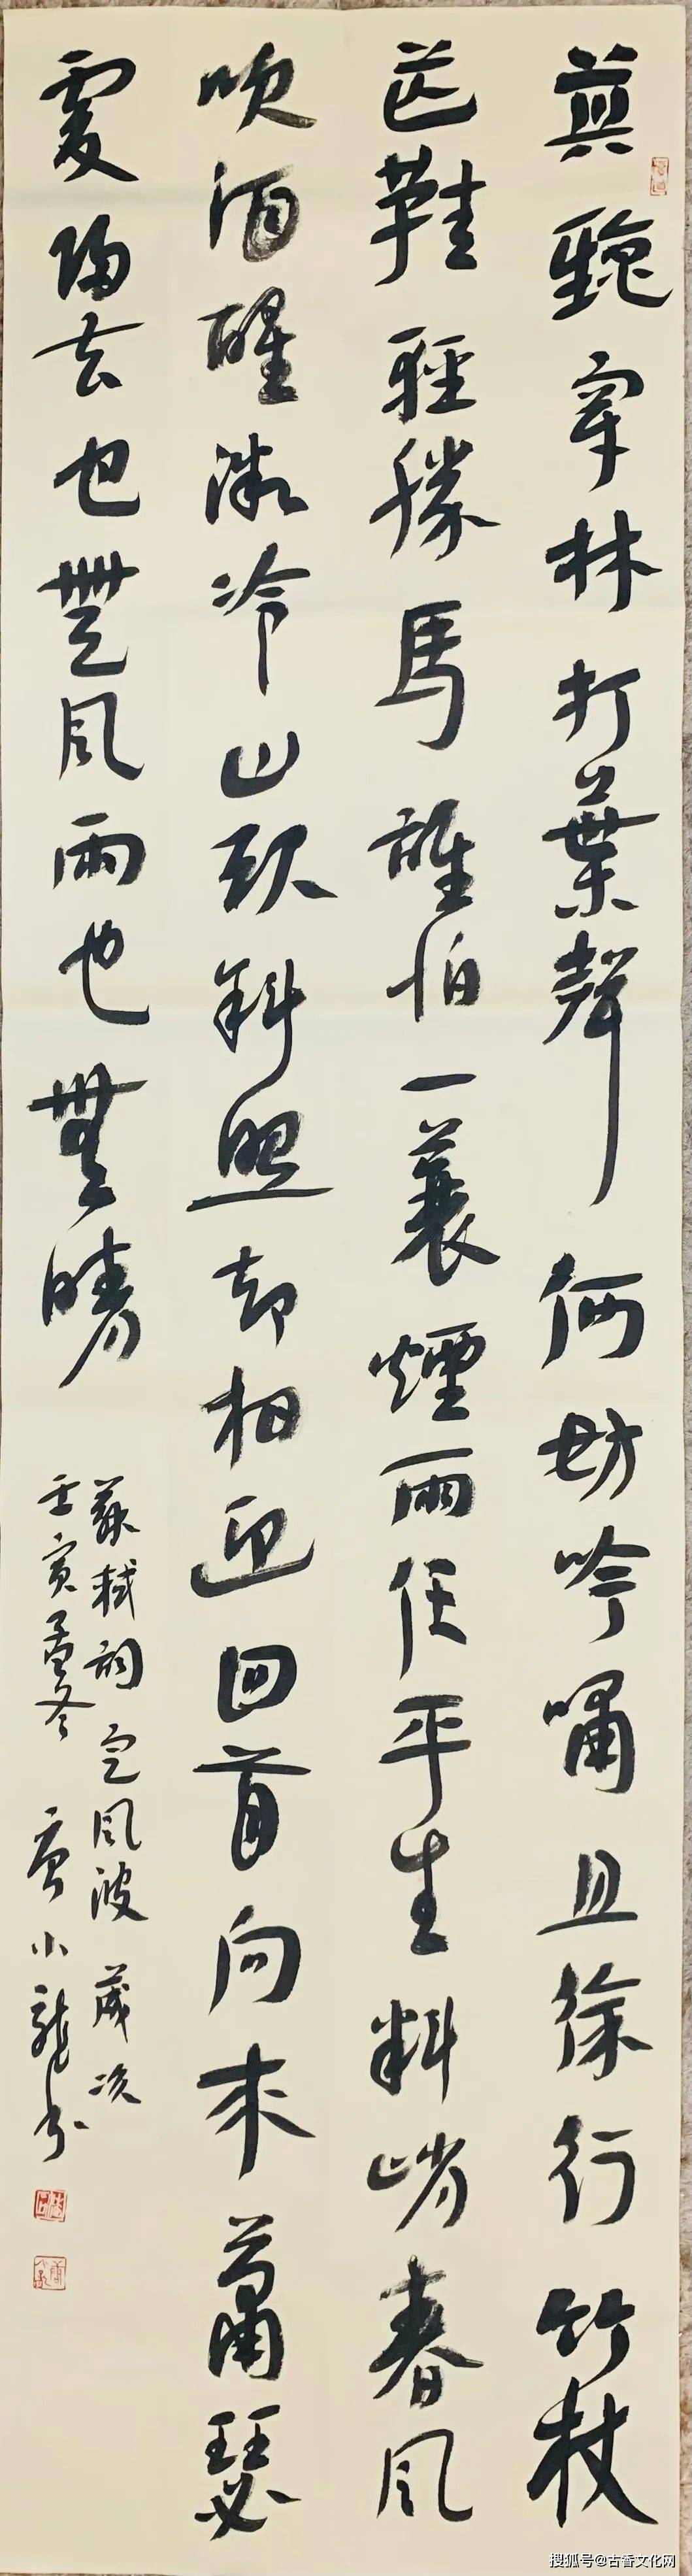 莫聽穿林打葉聲何妨吟嘯且徐行竹杖
芒鞋輕勝馬誰怕一蓑煙雨任平生料峭春風
吹酒醒微冷山頭斜照却相迎回首向來蕭瑟
處歸去也無風雨也無晴
蘇軾詞定風波歲次
壬寅孟冬唐小龍書
搜狐号@古香文化网